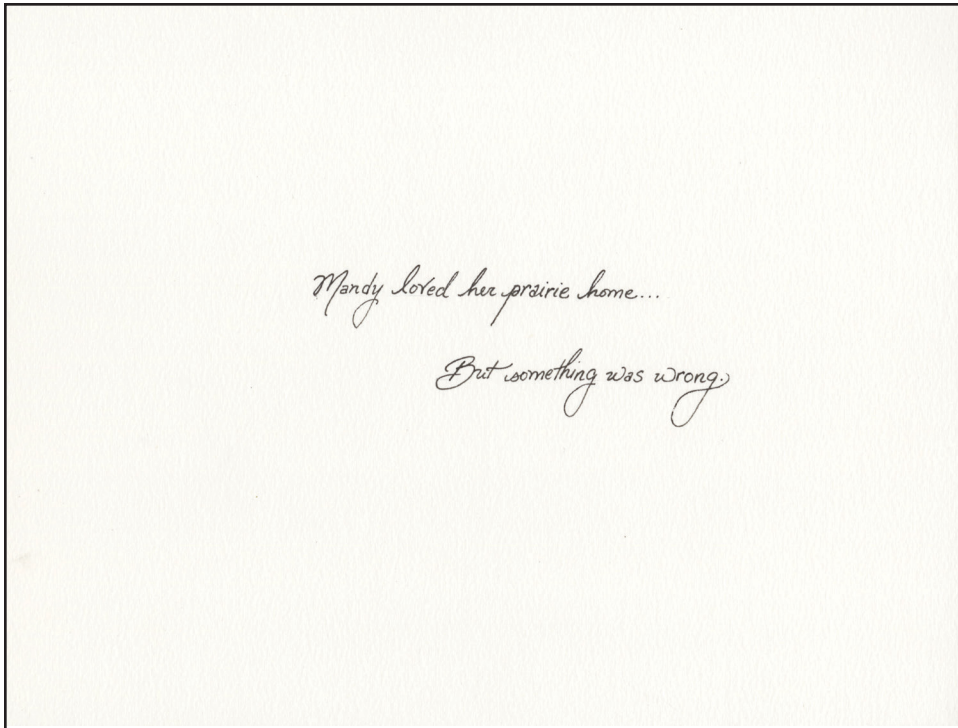 Mandy loved her prairie home...
But something was wrong.